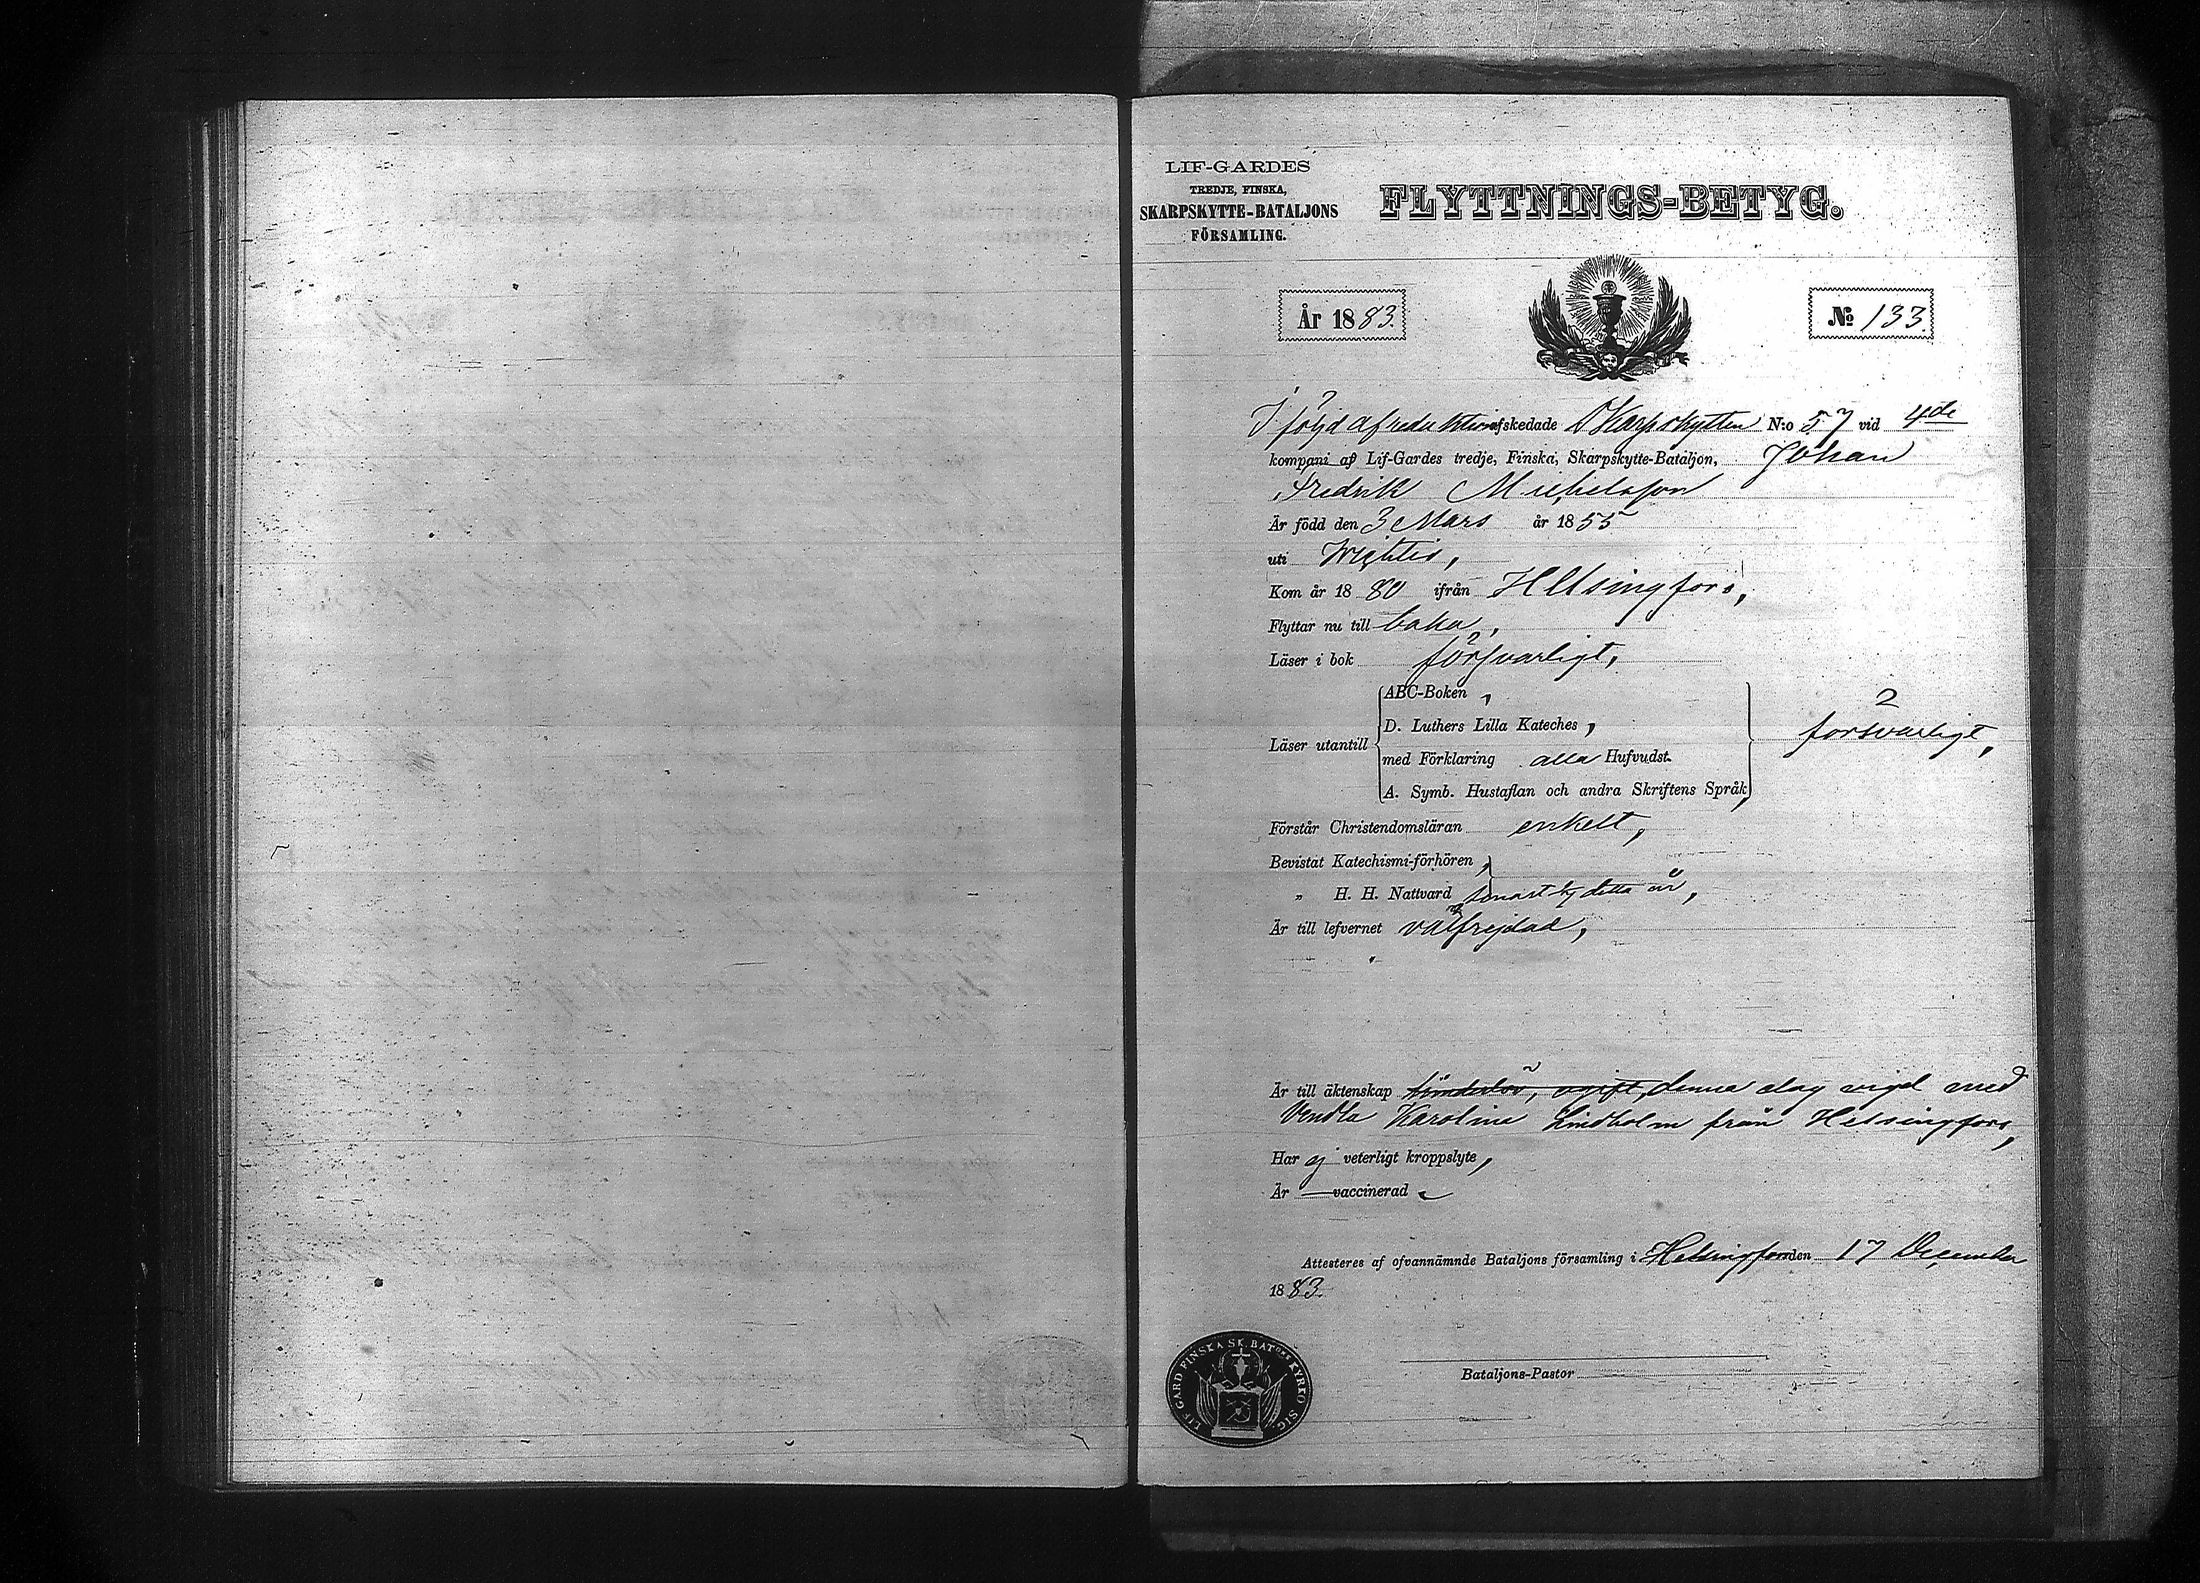 LIF-GARDES
TREDJE, FINSKA,
SKARPSKYTTE-BATALJONS
FÖRSAMLING.
FLYTTNINGS-BETYG.
År 1883.
No 133.
I följd af reduktion afskedade Skarpskytten N:o 57 vid 4de
kompani af Lif-Gardes tredje, Finska, Skarpskytte-Bataljon, Johan
Fredrik Michelsson
Är född den 3 Mars år 1855
uti Wichtis,
Kom år 1880 ifrån Helsingfors,
Flyttar nu till baka,
Läser i bok försvarligt,
ABC-Boken,
D. Luthers Lilla Kateches,
Läser utantill
med Förklaring alla Hufvudst.
A. Symb. Hustaflan och andra Skriftens Språk,
försvarligt,
Förstår Christendomsläran enkelt,
Bevistat Katechismi-förhören,
„ H. H. Nattvard senast detta år,
Är till lefvernet välfrejdad,
Är till äktenskap hinderlös, ogift, denna dag vigd med
Vendla Karolina Lindholm från Helsingfors,
Har ej veterligt kroppslyte,
Är vaccinerad
Attesteres af ofvannämnde Bataljons församling i Helsingfors den 17 December
1883.
Bataljons-Pastor
LIF GARD FINSKA SK. BAT:ONS KYRKO SIG.